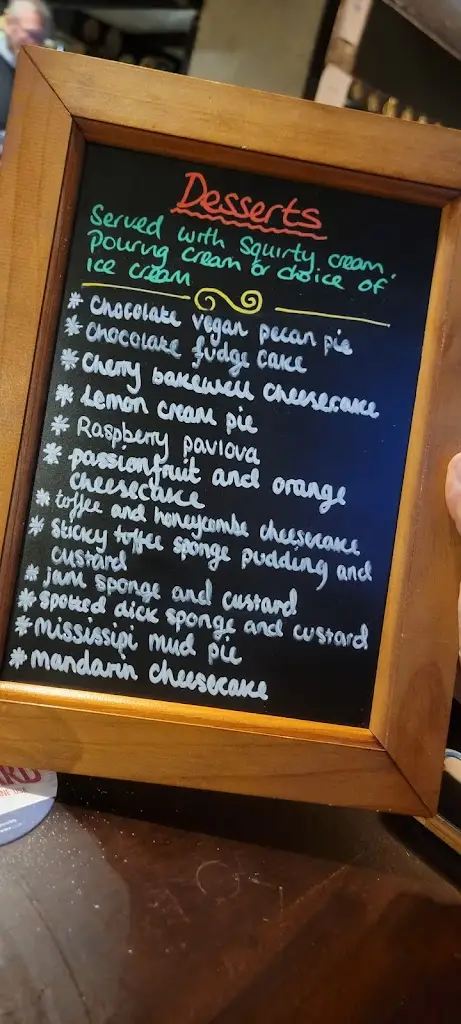 Desserts
Served with Squirty cream.
Pouring cream or choice of
ice cream
* Chocolate vegan pecan pie
* Chocolate fudge cake
* Cherry bakewell cheesecake
* Lemon cream pie
* Raspberry pavlova
* passionfruit and orange
cheesecake
* toffee and honeycombe cheesecake
* Sticky toffee sponge pudding and
custard
* jam sponge and custard
* spotted dick sponge and custard
* Mississipi mud pie
* mandarin cheesecake